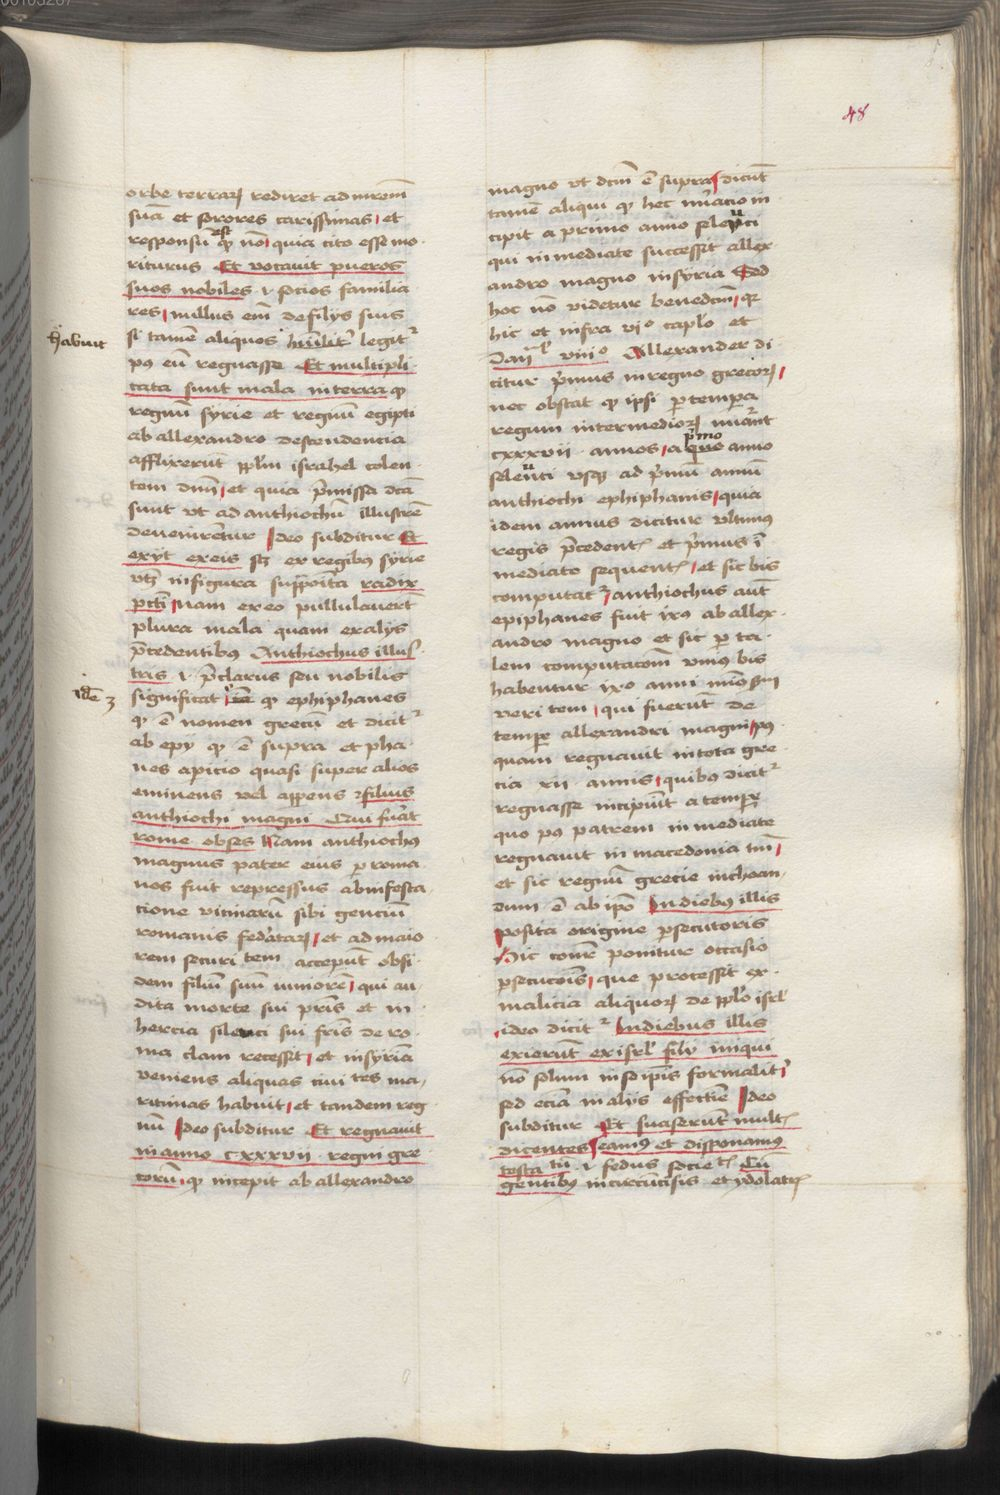 48
orbe terrarꝫ rediret ad mr̄em
suā et sorores carissimas et
responsū est qꝫ nō quia cito esse mo
riturus Et vocauit pueros
suos nobiles ⁊ socios familia
res nullus em̄ de filijs suis
habuit
si tamē aliquos legitᷣ
pꝰ eū regnasse Et multipli
cata sunt mala in terra qꝫ
regnū syrie et regnū egipti
ab allexandro descendencia
afflixerūt pplm̄ israhel colen
tem dnm̄ et quia p̄missa dcā
sunt vt ad anthiochū illustrē
deueniretur Ideo subditur Et
exijt ex eis scꝫ ex regibꝰ syrie
in figura radix
pctī Nam ex eo pullulauerūt
plura mala quam ex alijs
p̄cedentibꝰ Anthiochus illus
tris ⁊ p̄clarus seu nobilis
Idē ꝫ
significat qꝫ ephiphanes
qꝫ ē nomen grecū et dicitᷣ
ab epy qꝫ ē supra et pha
nes apicio quasi super alios
eminens vel apparens filius
anthiochi magni Qui fuāt
rome obses Nam anthiochꝰ
magnus pater eius p roma
nos fuit repressus ab infesta
cione vicinarū sibi genciū
romanis federatarꝫ et ad maio
rem securitatem accepūt obsi
dem filiū suū minorē qui au
dita morte sui pr̄is et in
hercia sileuci sui fr̄is de ro
ma clam recessit et in syriā
veniens aliquas ciuitates ma
ritimas habuit et tandem reg
nū Ideo subditur Et regnauit
in anno cxxxvii regni gre
corū qꝫ incepit ab allexandro
magno vt dcm̄ ē supra dicūt
tamē aliqui qꝫ hec nūacio in
cipit a primo anno seleuci
qui inmediate successit allex
andro magno in syria Sed
hoc nō videtur benedcm̄ qꝛ
hic et infra vjº caplo et
Danl viiiº Allexander di
citur p̄mus in regno grecorꝫ
nec obstat qꝫ ipsi p tempora
regum intermediorꝫ nūant
cxxxvii annos a quo primo anno
seleuci vsqꝫ ad p̄mū annū
anthiochi ephiphanis quia
idem annus dicitur vltimꝰ
regis p̄cedentis et p̄mus ī
mediate sequentis et sic bis
computatᷣ anthiochus aūt
epiphanes fuit ixꝰ ab allex
andro magno et sic p ta
lem computacōem vnius bis
habentur ixº anni
veritatem qui fuerūt de
tempore allexandri magni pꝰ
quam regnauit in tota gre
cia xii annis quibꝰ dicitᷣ
regnasse incipiūt a tempore
quo pꝰ patrem inmediate
regnauit in macedonia tm̄
et sic regnū grecie inchoan
dum ē ab ipō In diebꝰ illis
posita origine p̄secutoris
Hic cōsequenter ponitur occasio
p̄secucōis que processit ex
malicia aliquorꝫ de pplo isrl
ideo dicitᷣ In diebus illis
exierūt ex isrl filij iniqui
nō solum in se ipīs formalitᷣ
sed eciā in alijs effectiue Ideo
subditur Et suaserūt multis
dicentes Eamꝰ et disponamꝰ
testamentū ⁊ fedus societatis Cū
gentibꝰ incircūcisis et ydolatris